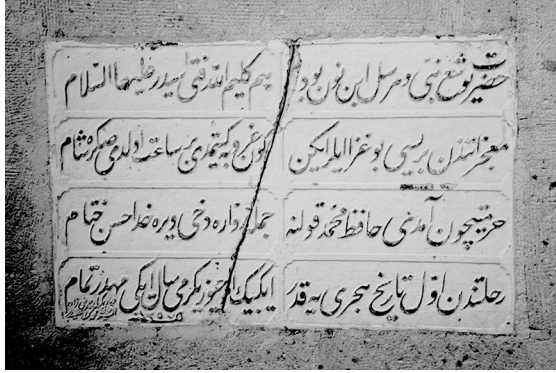 حضرت یوشع نبی و مرسل ابن نون بودر هم کلیم الله فتی سیدر علیهما السلام
معجزاتندن بریسی بو غزا ایلر ایکن کون غروب ایتمدی بر ساعت اولدی صکره شام
حرمتیچون آمدنی حافظ محمد قولنه جمله زواره دخی ویره خدا حسن ختام
رحلتندن اول تاریخ هجری یه قدر ایکی بیك یوز یکرمی سال ایکی مهدر تمام